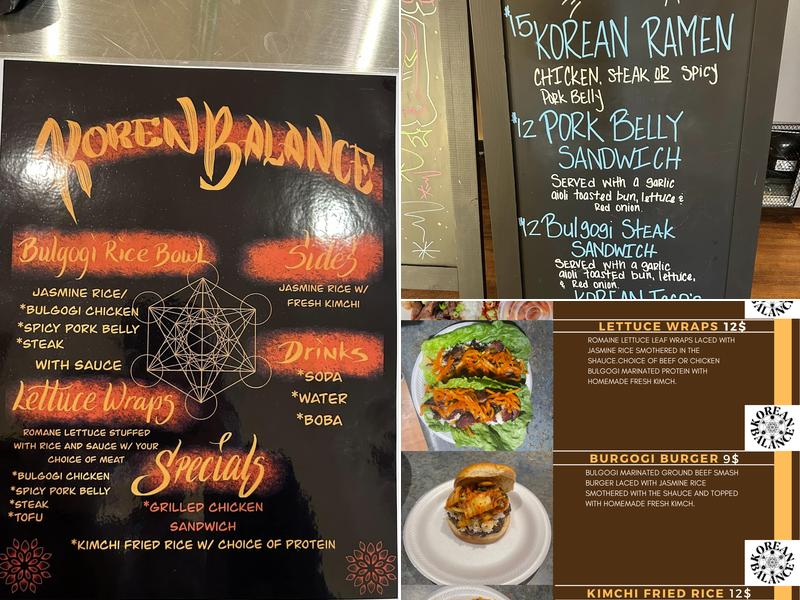 KOREN BALANCE
Bulgogi Rice Bowl
JASMINE RICE/
*BULGOGI CHICKEN
*SPICY PORK BELLY
*STEAK
WITH SAUCE
Lettuce Wraps
ROMANE LETTUCE STUFFED
WITH RICE AND SAUCE W/ YOUR
CHOICE OF MEAT
*BULGOGI CHICKEN
*SPICY PORK BELLY
*STEAK
*TOFU
Sides
JASMINE RICE W/
FRESH KIMCHI
Drinks
*SODA
*WATER
*BOBA
Specials
*GRILLED CHICKEN
SANDWICH
*KIMCHI FRIED RICE W/ CHOICE OF PROTEIN
$15 KOREAN RAMEN
CHICKEN, STEAK OR SPICY
Pork Belly
$12 PORK BELLY
SANDWICH
SERVED with a garlic
aioli toasted bun, lettuce &
Red onion.
$12 Bulgogi Steak
SANDWICH
SERVED with a garlic
aioli toasted bun, lettuce,
& Red onion.
KOREAN Taco's
LETTUCE WRAPS 12$
ROMAINE LETTUCE LEAF WRAPS LACED WITH
JASMINE RICE SMOTHERED IN THE
SHAUCE.CHOICE OF BEEF OR CHICKEN
BULGOGI MARINATED PROTEIN WITH
HOMEMADE FRESH KIMCH.
KOREAN
BALANCE
BURGOGI BURGER 9$
BULGOGI MARINATED GROUND BEEF SMASH
BURGER LACED WITH JASMINE RICE
SMOTHERED WITH THE SHAUCE AND TOPPED
WITH HOMEMADE FRESH KIMCH.
KOREAN
BALANCE
KIMCHI FRIED RICE 12$